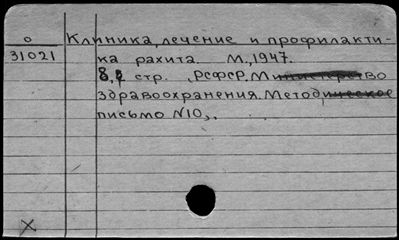 о
31021
Клиника, лечение и профилакти-
ка рахита. М., 1947.
8 стр. (РСФСР. Министерство
здравоохранения. Методическое
письмо N10).
X